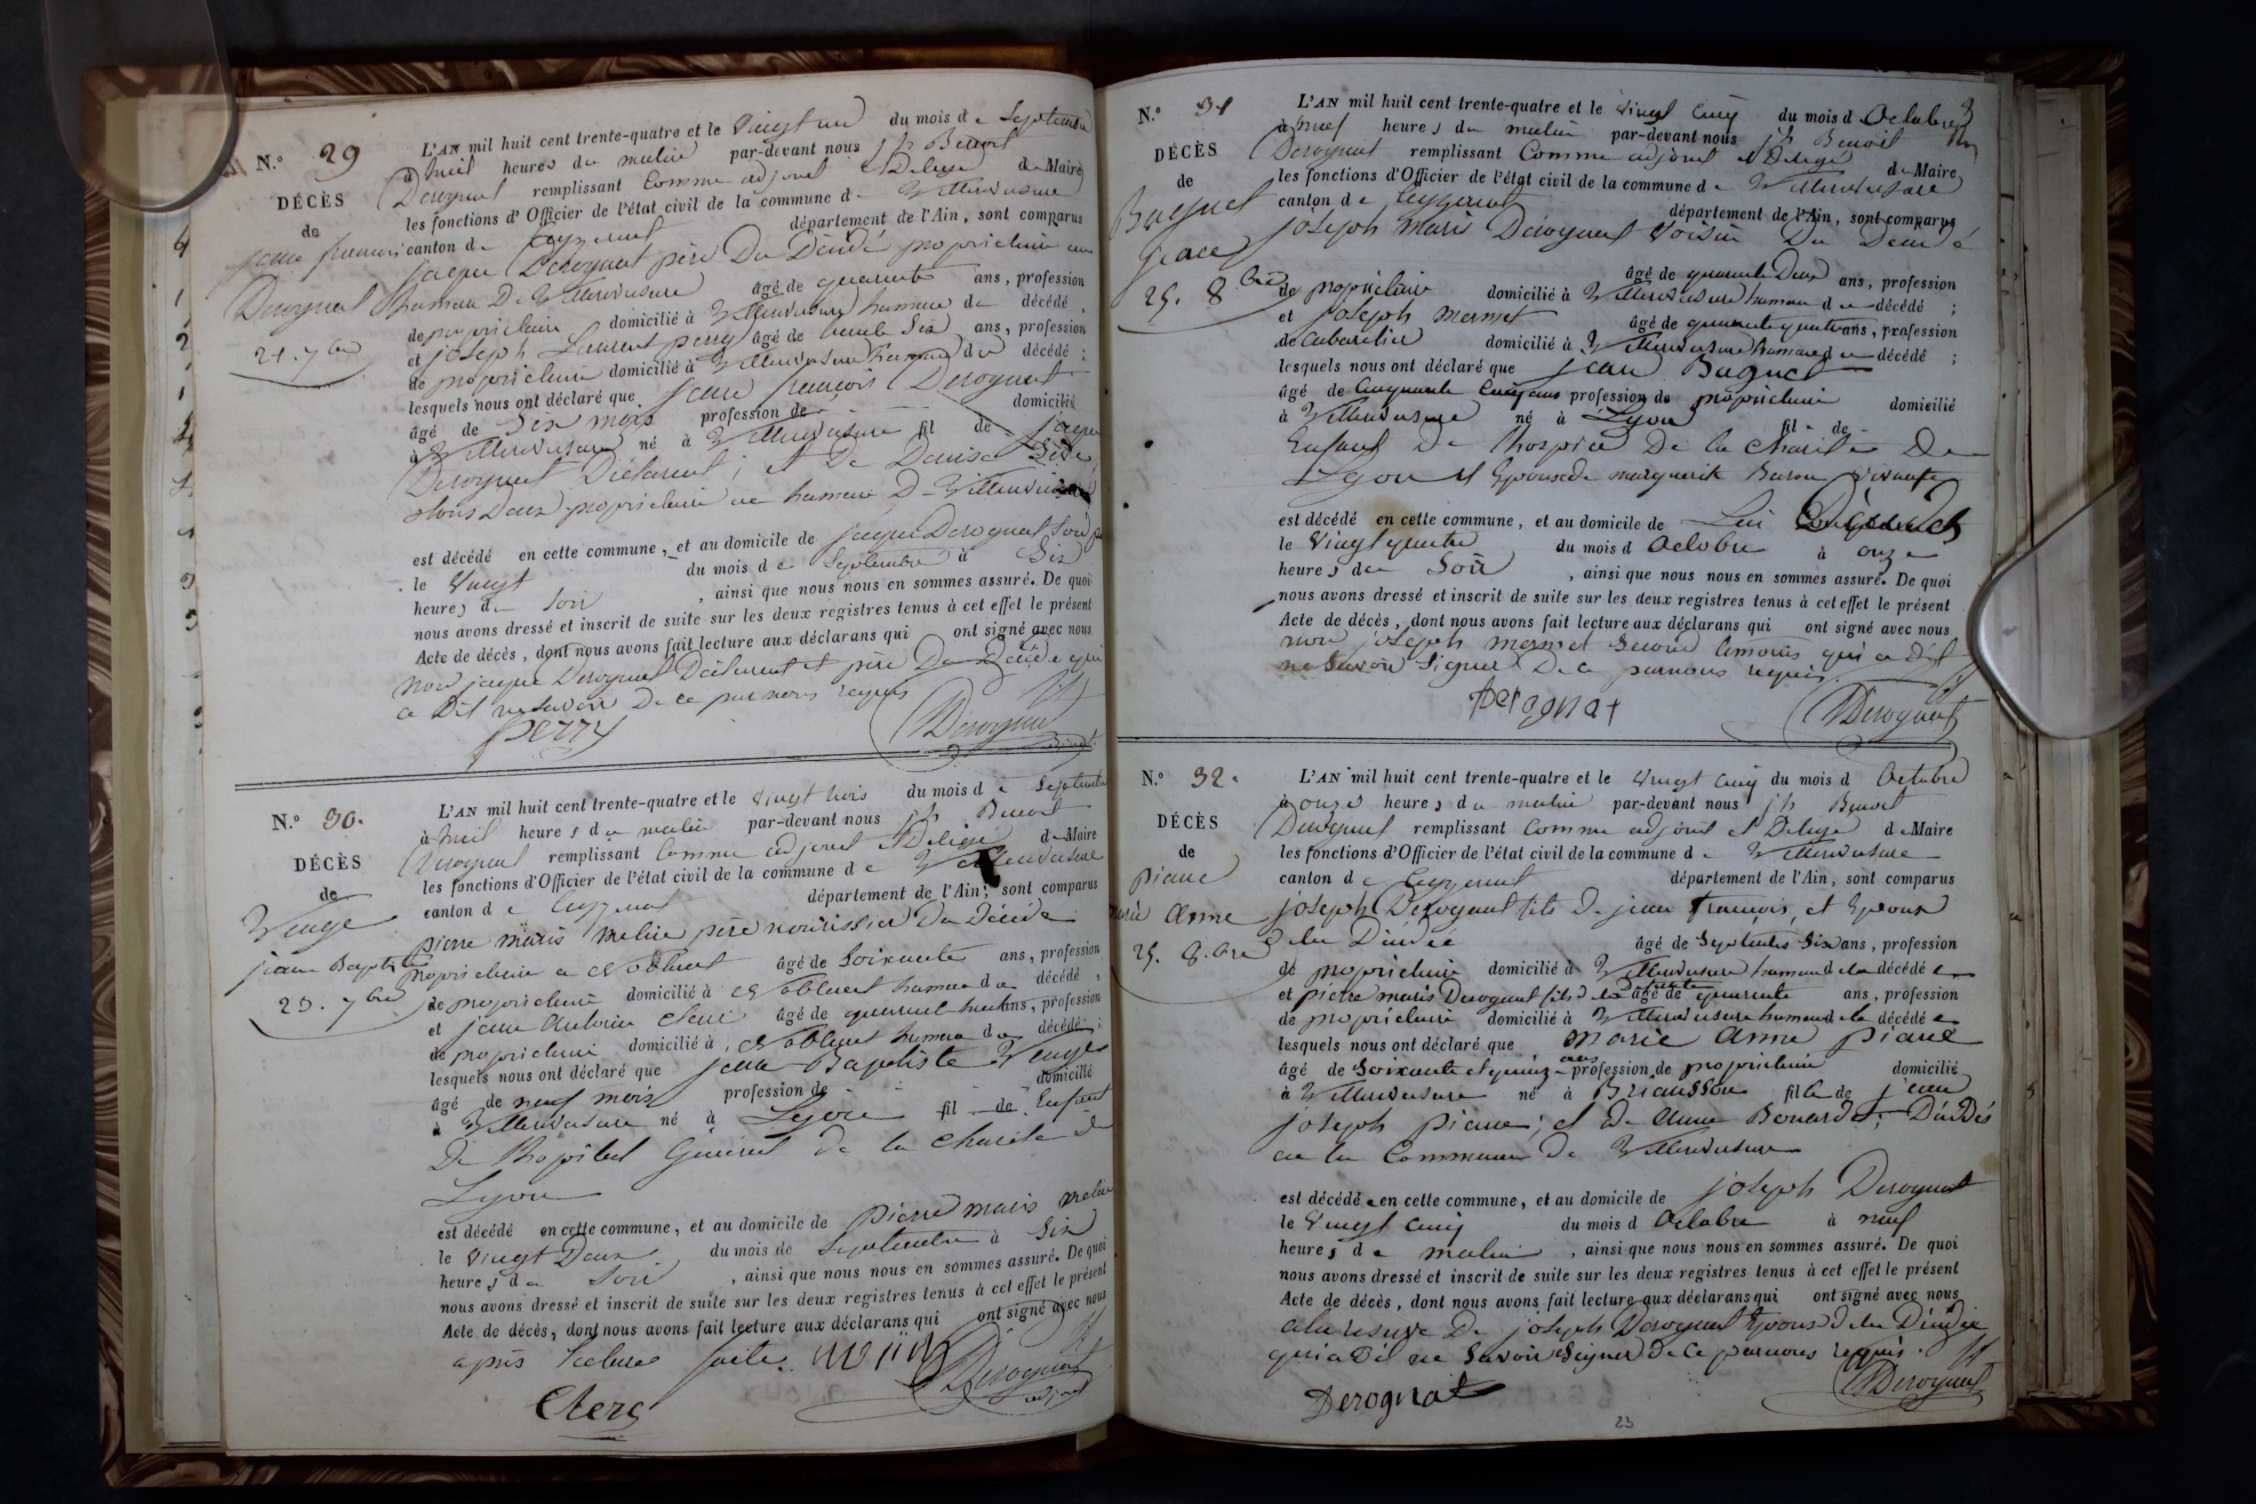 N.° 29
DÉCÈS
de
jean francois
Derognat
21. 7bre
L'AN mil huit cent trente-quatre et le vingt un du mois de Septembre
à huit heures du matin par-devant nous jh Benoit
Derognat remplissant Comme adjoint et Delegé de Maire
les fonctions d'Officier de l'état civil de la commune de Villereversure
canton de Ceyzeriat département de l'Ain, sont comparus
jacque Derognat père Du Décédé proprietaire au
hameau De Villereversure âgé de quarante ans, profession
de proprietaire domicilié à Villereversure hameau du décédé,
et joseph Laurent perry âgé de trente Six ans, profession
de proprietaire domicilié à Villereversure hameau du décédé;
lesquels nous ont déclaré que jean francois Derognat
âgé de Six mois profession de domicilié
à Villereversure né à Villereversure fil de jacque
Derognat Déclarant; et De Denise
tous Deux proprietaire au hameau De Villereversure
est décédé en cette commune, et au domicile de jacque Derognat Son
le vingt du mois de Septembre à Six
heures du Soir, ainsi que nous nous en sommes assuré. De quoi
nous avons dressé et inscrit de suite sur les deux registres tenus à cet effet le présent
Acte de décès, dont nous avons fait lecture aux déclarans qui ont signé avec nous
non jacque Derognat Déclarant et père Du Décédé qui
a Dit ne Savoir De ce par nous requis
perry Derognat
N.° 30.
DÉCÈS
de
Venge
jean Baptiste
23. 7bre
L'AN mil huit cent trente-quatre et le vingt trois du mois de Septembre
à huit heures du matin par-devant nous jh Benoit
Derognat remplissant Comme adjoint et Delegé de Maire
les fonctions d'Officier de l'état civil de la commune de Villereversure
canton de Ceyzeriat département de l'Ain, sont comparus
pierre marie père nourissier Du Décédé
proprietaire a Noblent âgé de Soixante ans, profession
de proprietaire domicilié à Noblent hameau du décédé,
et jean Antoine Clerc âgé de quarante huit ans, profession
de proprietaire domicilié à Noblent hameau du décédé;
lesquels nous ont déclaré que jean Baptiste Venge
âgé de neuf mois profession de domicilié
à Villereversure né à Lyon fil de Enfant
De l'hopital General De la Charité de
Lyon
est décédé en cette commune, et au domicile de pierre marie
le vingt Deux du mois de Septembre à Six
heures du Soir, ainsi que nous nous en sommes assuré. De quoi
nous avons dressé et inscrit de suite sur les deux registres tenus à cet effet le présent
Acte de décès, dont nous avons fait lecture aux déclarans qui ont signé avec nous
après lecture faite.
Clerc Derognat adjoint
N.° 31
DÉCÈS
de
Buguet
jean
25. 8bre
L'AN mil huit cent trente-quatre et le vingt cinq du mois d Octobre
à neuf heures du matin par-devant nous jh Benoit
Derognat remplissant Comme adjoint et Delegé de Maire
les fonctions d'Officier de l'état civil de la commune de Villereversure
canton de Ceyzeriat département de l'Ain, sont comparus
joseph marie Derognat Voisin Du Décédé
âgé de quarante Deux ans, profession
de proprietaire domicilié à Villereversure hameau du décédé;
et joseph mermet âgé de quarante quatre ans, profession
de Cabaretier domicilié à Villereversure hameau du décédé;
lesquels nous ont déclaré que jean Buguet
âgé de Cinquante Cinq ans profession de proprietaire domicilié
à Villereversure né à Lyon fil de
Enfant De l'hospice De la Charité De
Lyon et Epoux de marguerite Buron vivante
est décédé en cette commune, et au domicile de Lui
le vingt quatre du mois d Octobre à onze
heures du Soir, ainsi que nous nous en sommes assuré. De quoi
nous avons dressé et inscrit de suite sur les deux registres tenus à cet effet le présent
Acte de décès, dont nous avons fait lecture aux déclarans qui ont signé avec nous
non joseph mermet Second temoins qui a Dit
ne Savoir Signer De ce par nous requis.
Derognat Derognat
N.° 32.
DÉCÈS
de
piane
marie anne
25. 8.bre
L'AN mil huit cent trente-quatre et le vingt cinq du mois d Octobre
à onze heures du matin par-devant nous jh Benoit
Derognat remplissant Comme adjoint et Delegé de Maire
les fonctions d'Officier de l'état civil de la commune de Villereversure
canton de Ceyzeriat département de l'Ain, sont comparus
joseph Derognat fils De jean francois, et Epoux
de la Décédée âgé de Septente Six ans, profession
de proprietaire domicilié à Villereversure hameau de la décédée
et pierre marie Derognat fils de la âgé de quarente ans, profession
de proprietaire domicilié à Villereversure hameau de la décédée
lesquels nous ont déclaré que marie anne piane
âgé de Soixante et quinze ans profession de proprietaire domicilié
à Villereversure né à Briansson fille de jean
joseph piane; et De Anne Bonardet; Décédés
en la Commune De Villereversure
est décédée en cette commune, et au domicile de joseph Derognat
le vingt cinq du mois d Octobre à neuf
heures de matin, ainsi que nous nous en sommes assuré. De quoi
nous avons dressé et inscrit de suite sur les deux registres tenus à cet effet le présent
Acte de décès, dont nous avons fait lecture aux déclarans qui ont signé avec nous
a la reserve De joseph Derognat Epoux De la Décédée
qui a Dit ne Savoir Signer De ce par nous requis.
Derognat Derognat
23